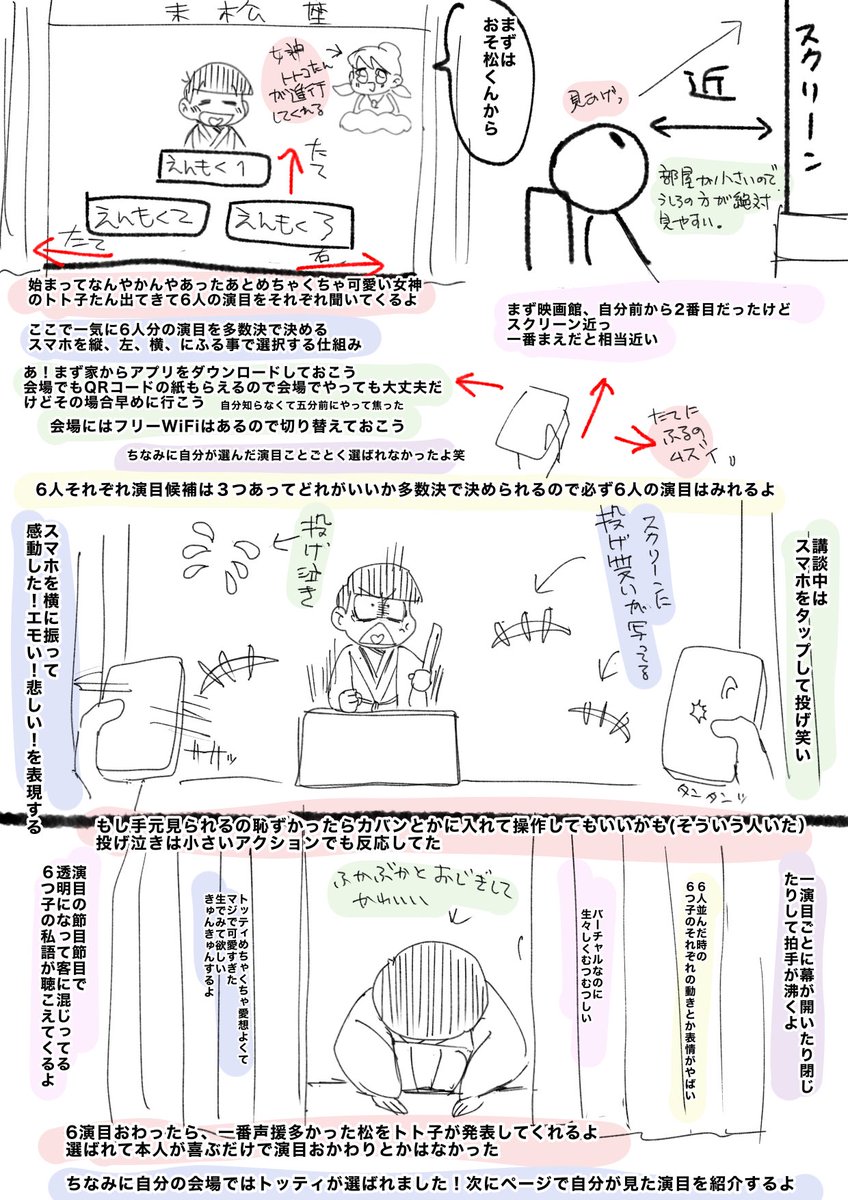 末松座
まずは
おそ松くんから
スクリーン
近
見あげっ
部屋が小さいので
うしろの方が絶対
見やすい。
女神
トト子たん
が進行
してくれる
えんもく1
えんもく2
えんもく3
たて
たて
右
始まってなんやかんやあったあとめちゃくちゃ可愛い女神
のトト子たん出てきて6人の演目をそれぞれ聞いてくるよ
まず映画館、自分前から2番目だったけど
スクリーン近っ
一番まえだと相当近い
ここで一気に6人分の演目を多数決で決める
スマホを縦、左、横、にふる事で選択する仕組み
あ！まず家からアプリをダウンロードしておこう
会場でもQRコードの紙もらえるので会場でやっても大丈夫だ
けどその場合早めに行こう　自分知らなくて五分前にやって焦った
会場にはフリーWiFiはあるので切り替えておこう
ちなみに自分が選んだ演目ことごとく選ばれなかったよ笑
たてに
ふるの
ムズイ
6人それぞれ演目候補は３つあってどれがいいか多数決で決められるので必ず6人の演目はみれるよ
講談中は
スマホをタップして投げ笑い
スクリーンに
投げ笑いが写ってる
投げ泣き
スマホを横に振って
感動した！エモい！悲しい！を表現する
タンタンッ
もし手元見られるの恥ずかったらカバンとかに入れて操作してもいいかも(そういう人いた)
投げ泣きは小さいアクションでも反応してた
一演目ごとに幕が開いたり閉じ
たりして拍手が沸くよ
6人並んだ時の
6つ子のそれぞれの動きとか表情がやばい
バーチャルなのに
生々しくむつむつしい
ふかぶかとおじぎして
かわいい
トッティめちゃくちゃ愛想よくて
マジで可愛すぎた
生でみて欲しい
きゅんきゅんするよ
演目の節目節目で
透明になって客に混じってる
６つ子の私語が聴こえてくるよ
6演目おわったら、一番声援多かった松をトト子が発表してくれるよ
選ばれて本人が喜ぶだけで演目おかわりとかはなかった
ちなみに自分の会場ではトッティが選ばれました！次にページで自分が見た演目を紹介するよ